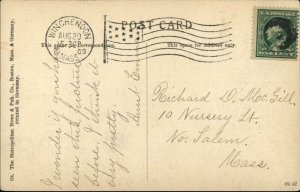 POST CARD
WINCHENDON
AUG 20
MASS.
This space for Correspondence.
This space for Address only.
Aunt Emma
I wonder if you have
seen this picture
before. I think it
very pretty.
Richard D. McGill
10 Nursery St.
No. Salem
Mass.
Co. The Metropolitan News & Pub. Co., Boston, Mass. & Germany.
Printed in Germany.